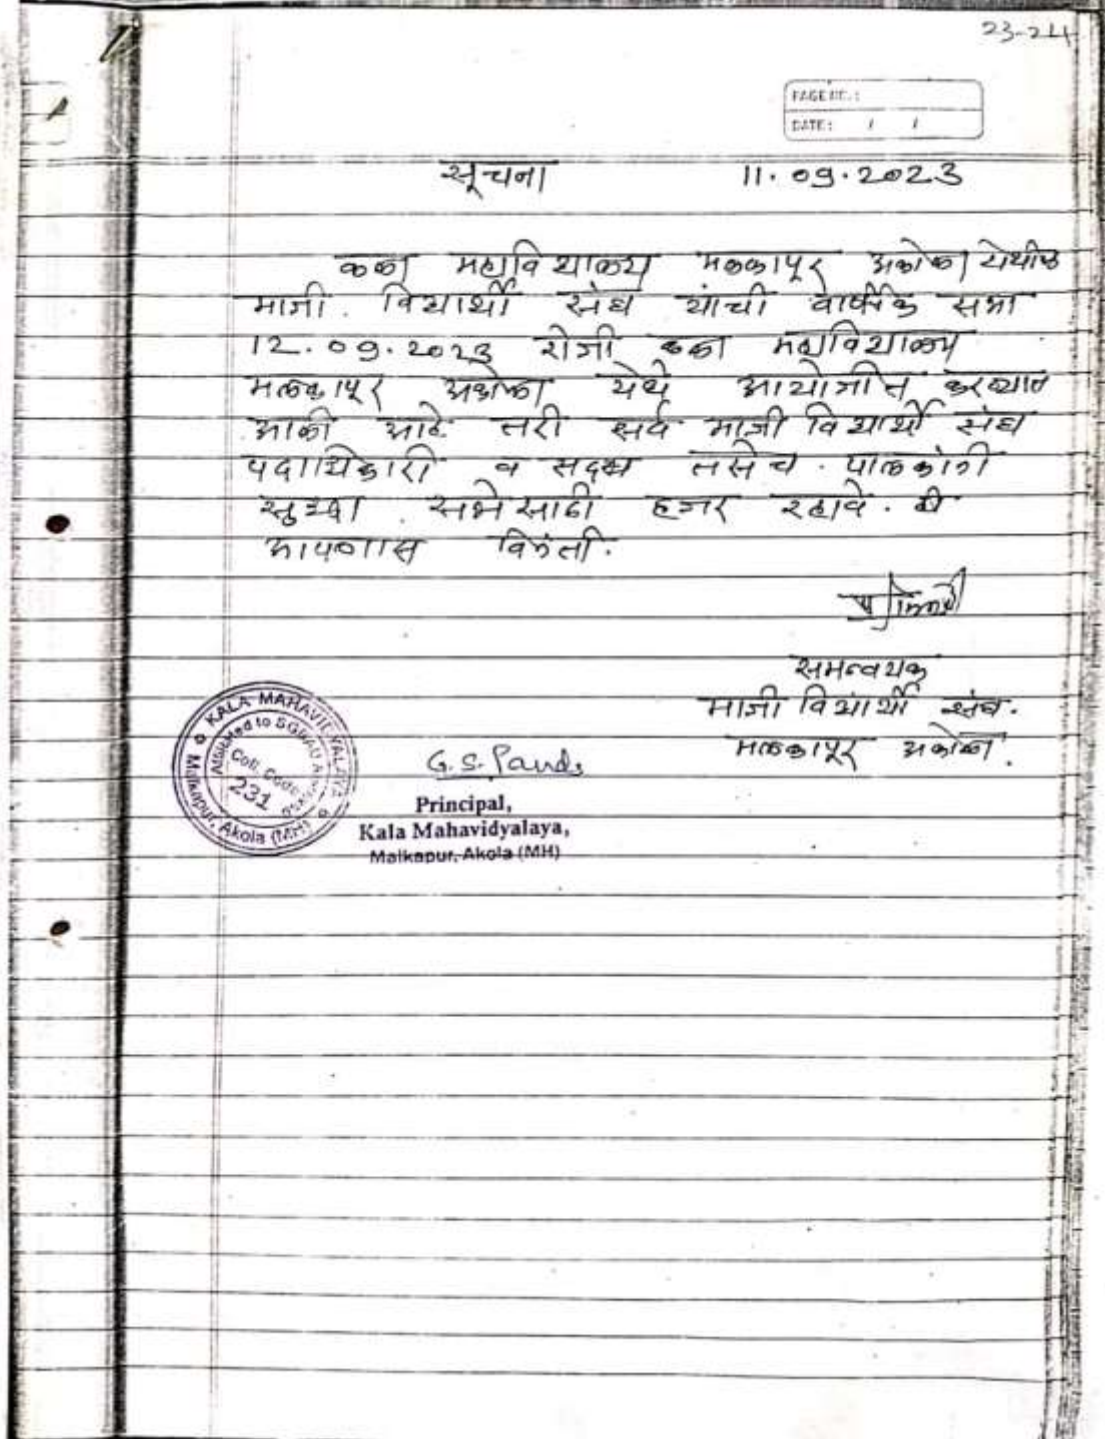 23-24
PAGE NO.:
DATE: / /
सूचना 11.09.2023
कला महाविद्यालय मलकापूर अकोला येथील
माजी विद्यार्थी संघ यांची वार्षिक सभा
12.09.2023 रोजी कला महाविद्यालय
मलकापूर अकोला येथे आयोजीत करण्यात
आली आहे. तरी सर्व माजी विद्यार्थी संघ
पदाधिकारी व सदस्य तसेच पालकांनी
सुध्दा सभेसाठी हजर रहावे. ही
आपणास विनंती.
समन्वयक
माजी विद्यार्थी संघ.
मलकापूर अकोला.
KALA MAHAVIDYALAYA
Affiliated to SGBAU
Coll. Code
231
Malkapur, Akola (MH)
G. S. Pande
Principal,
Kala Mahavidyalaya,
Malkapur, Akola (MH)